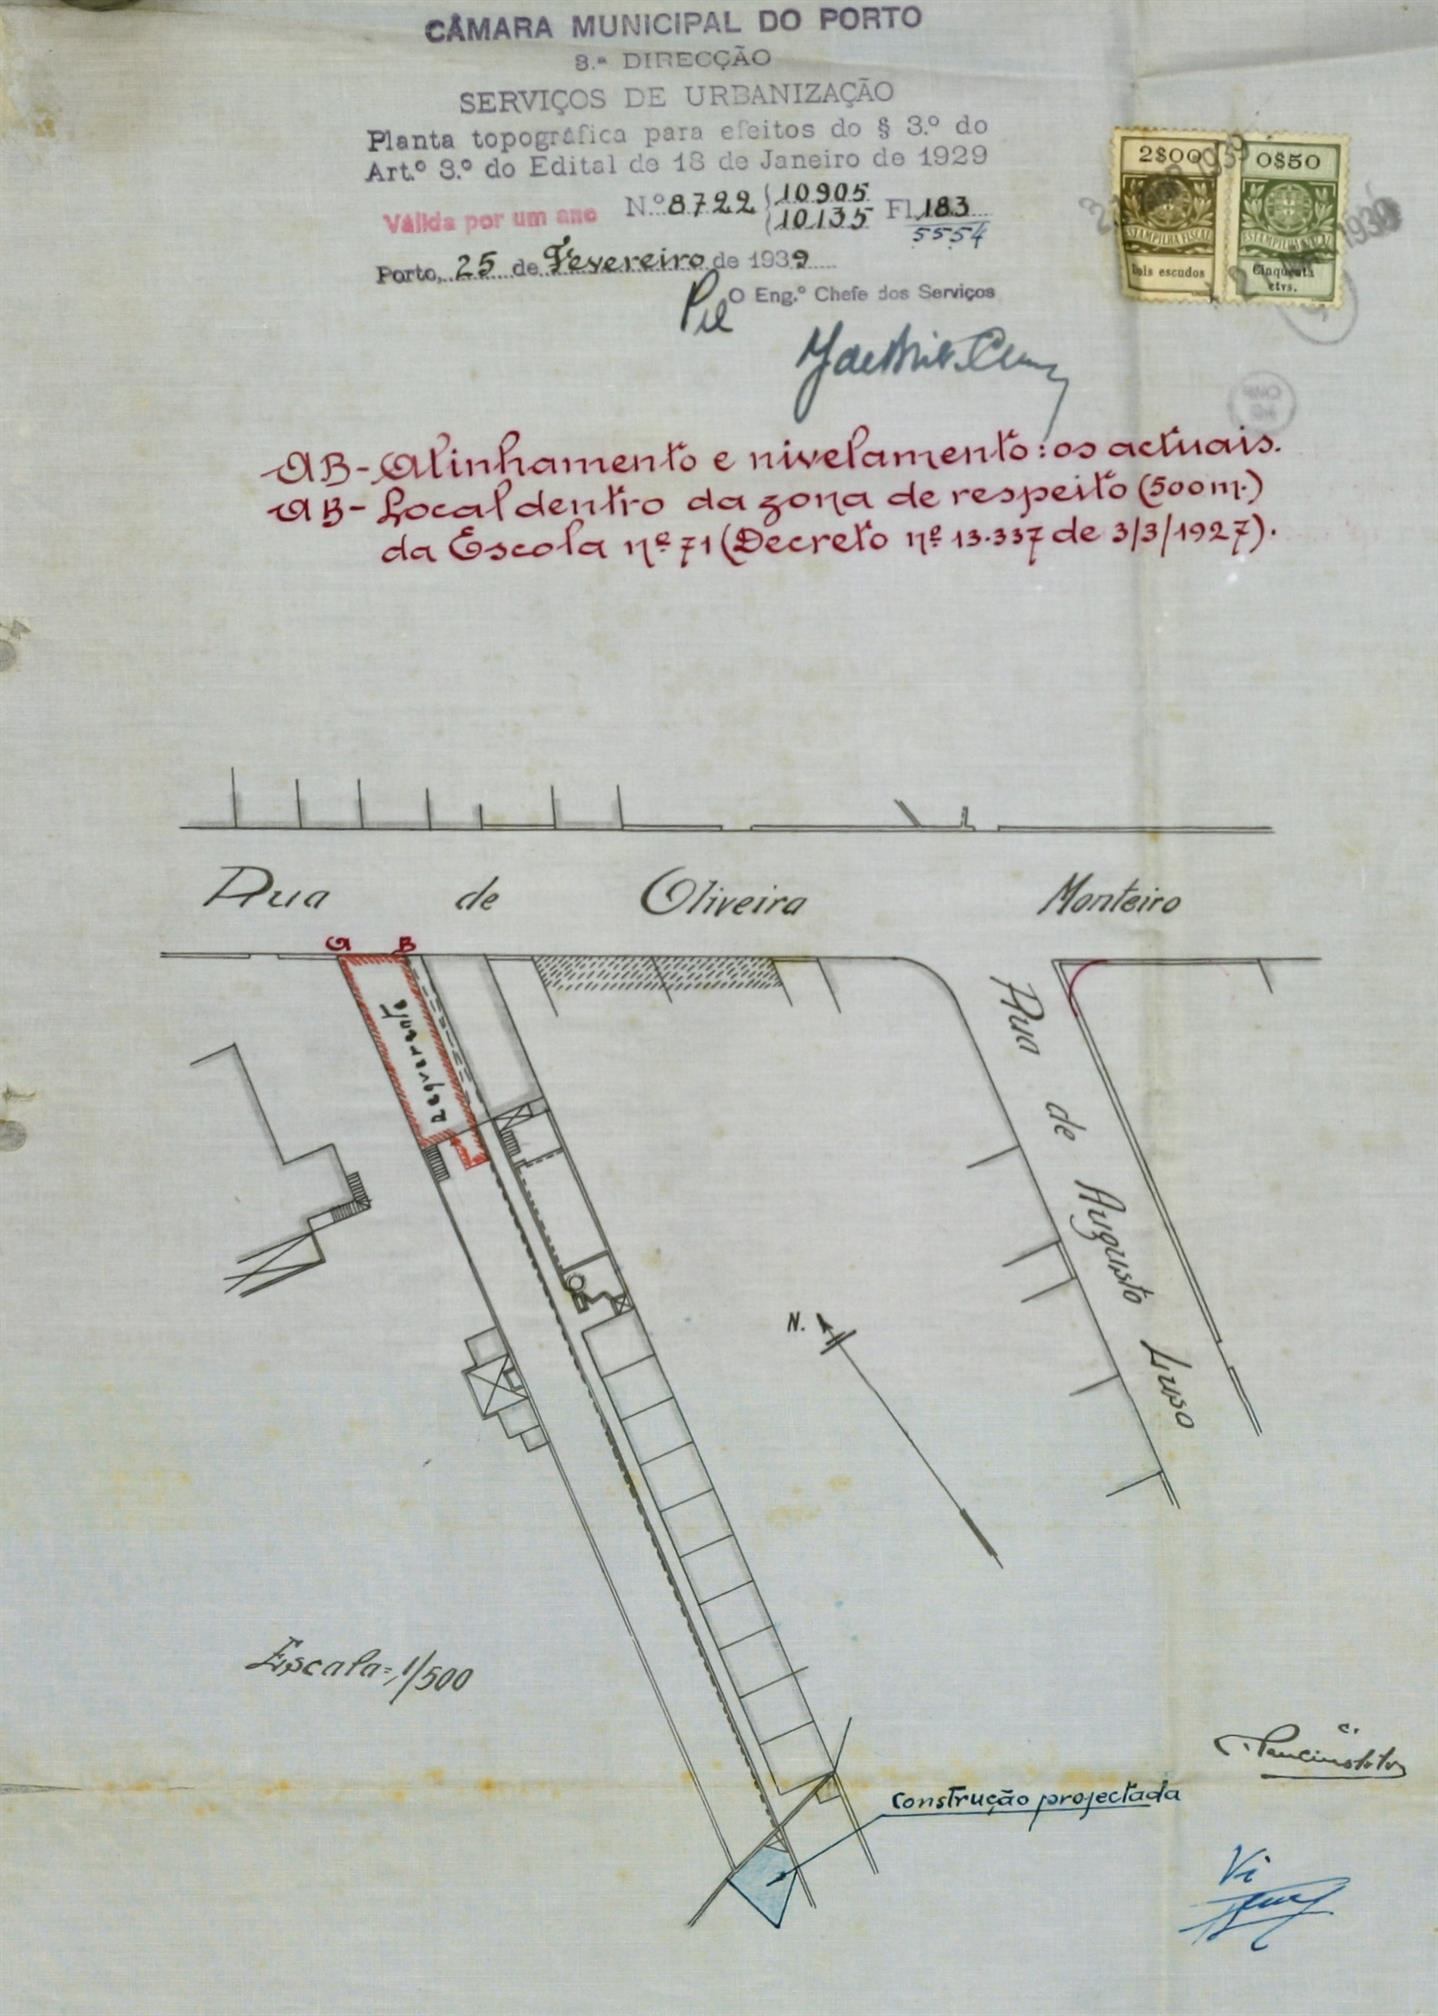 CÂMARA MUNICIPAL DO PORTO
3.ª DIRECÇÃO
SERVIÇOS DE URBANIZAÇÃO
Planta topográfica para efeitos do § 3.º do
Art.º 3.º do Edital de 18 de Janeiro de 1929
Válida por um ano N.º 8722 { 10905 10135 Fl. 183
5554
Porto, 25 de Fevereiro de 1939
O Eng.º Chefe dos Serviços
2$00 0$50
ESTAMPILHA FISCAL ESTAMPILHA FISCAL
Dois escudos Cinquenta ctvs.
AB - Alinhamento e nivelamento: os actuais.
AB - Local dentro da zona de respeito (500 m.)
da Escola nº 71 (Decreto nº 13.337 de 3/3/1927).
Rua de Oliveira Monteiro
A B
Requerente
Rua de Augusto Luso
N.
Escala = 1/500
construção projectada
Vi